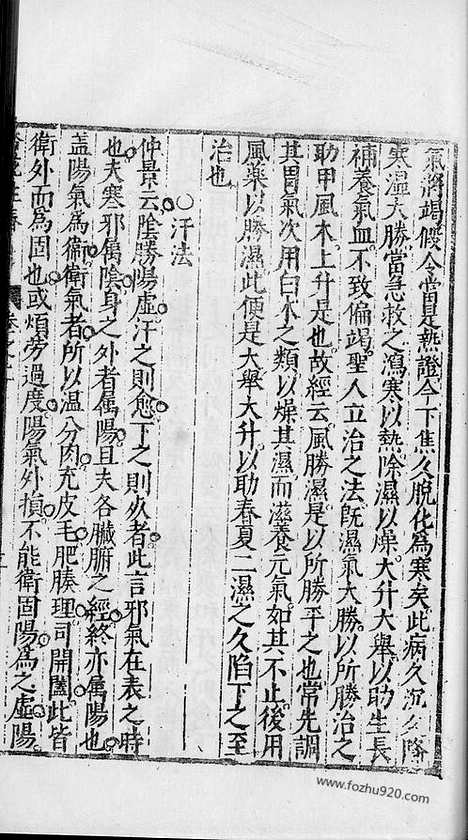 氣將竭假令當是熱證今下焦久脫化爲寒矣此病久沉久降
寒濕大勝當急救之瀉寒以熱除濕以燥大升大舉以助生長
補養氣血不致偏竭聖人立治之法旣濕氣大勝以所勝治之
助甲風木上升是也故經云風勝濕是以所勝平之也當先調
其胃氣次用白术之類以燥其濕而滋養元氣如其不止後用
風藥以勝濕此便是大舉大升以助春夏二濕之久陷下之至
治也
○汗法
仲景云陰勝陽虛汗之則愈下之則必者此言邪氣在表之時
也夫寒邪屬陰身之外者屬陽且夫各臟腑之經終亦屬陽也
盖陽氣爲衞衞氣者所以温分肉充皮毛肥腠理司開闔此皆
衛外而爲固也或煩劳過度陽氣外損不能衛固陽爲之虛陽
www.fozhu920.com